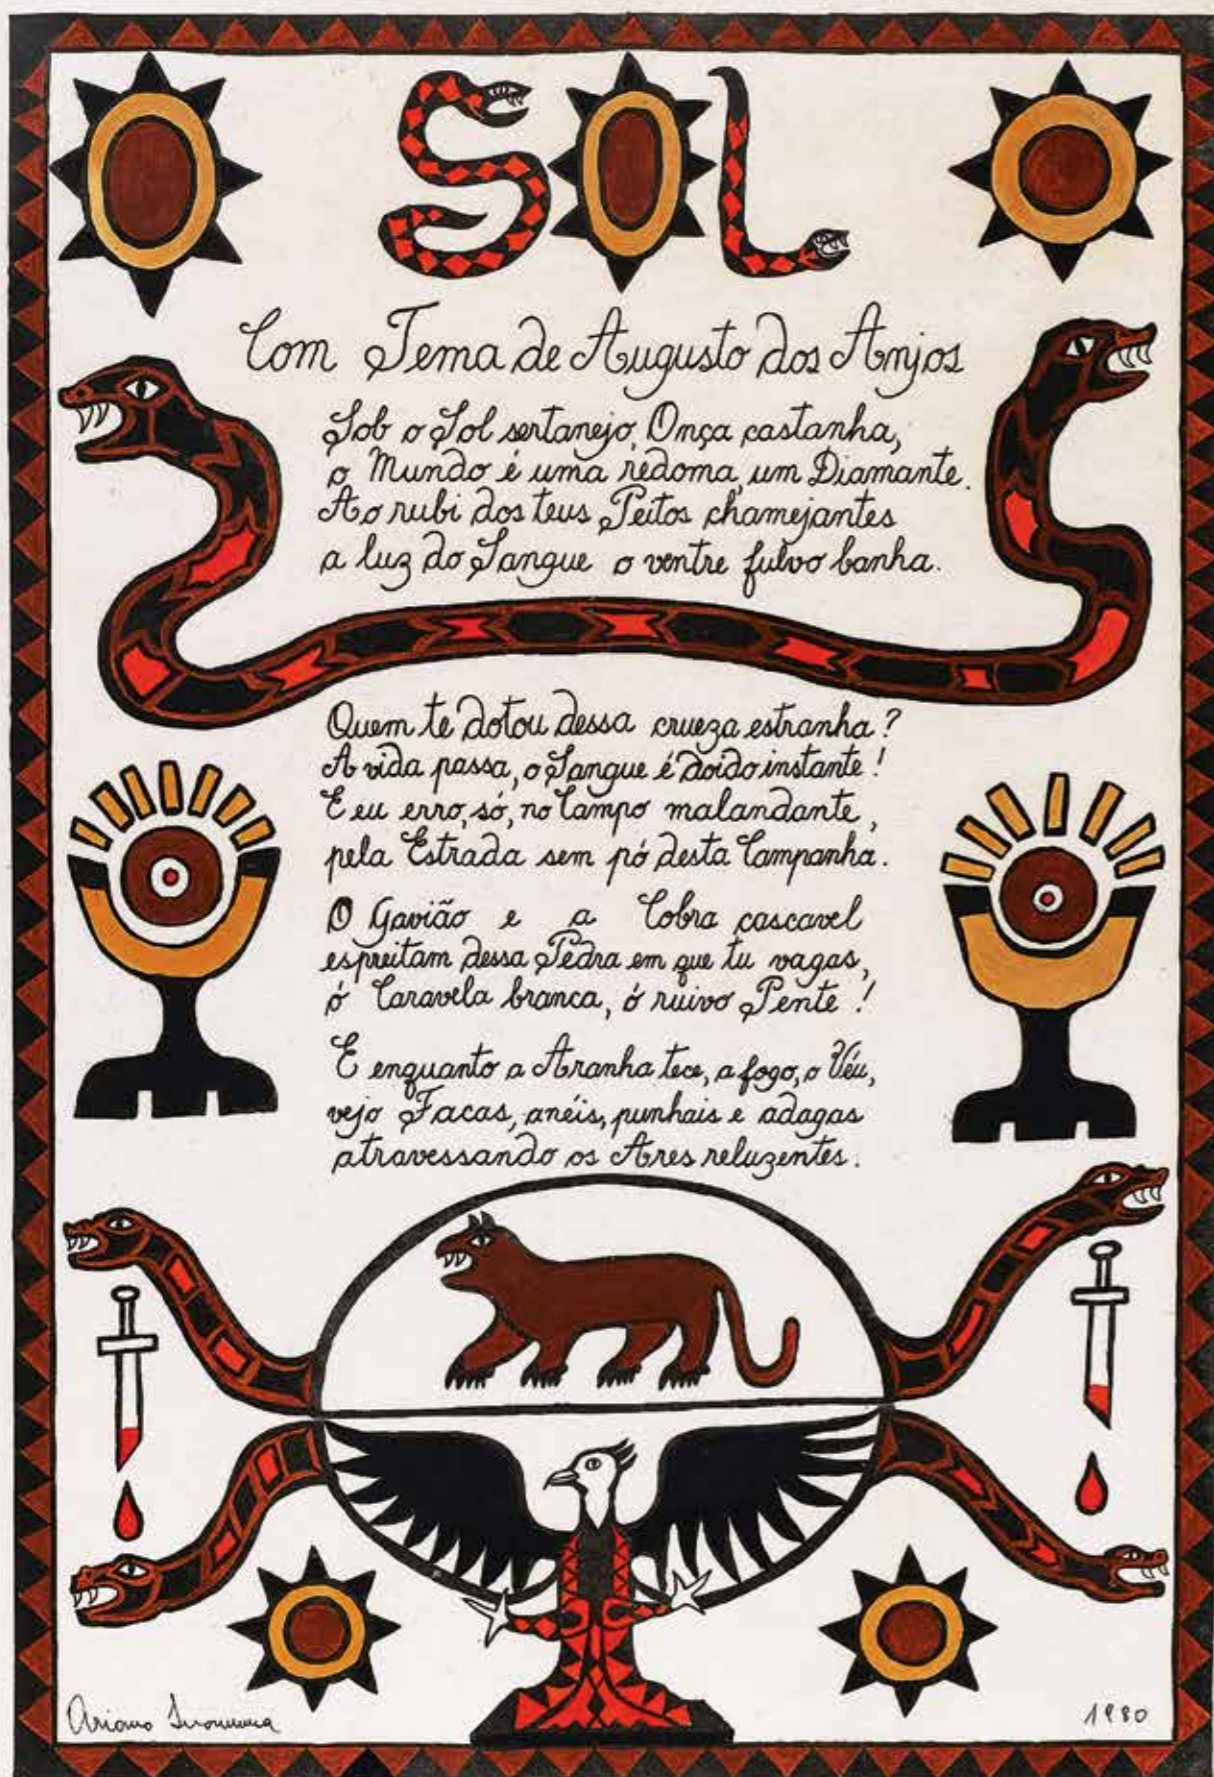 SOL
Com Tema de Augusto dos Anjos
Sob o Sol sertanejo, Onça castanha,
o Mundo é uma rédoma, um Diamante.
Ao rubi dos teus Peitos chamejantes
a luz do Sangue o ventre fulvo banha.
Quem te dotou dessa crueza estranha?
A vida passa, o Sangue é doido instante!
E eu erro, só, no Campo malandante,
pela Estrada sem pó desta Campanha.
O Gavião e a Cobra cascavel
espreitam dessa Pedra em que tu vagas,
ó Caravela branca, ó ruivo Pente!
E enquanto a Aranha tece, a fogo, o Véu,
vejo Facas, anéis, punhais e adagas
atravessando os Ares reluzentes.
Ariano Suassuna
1980